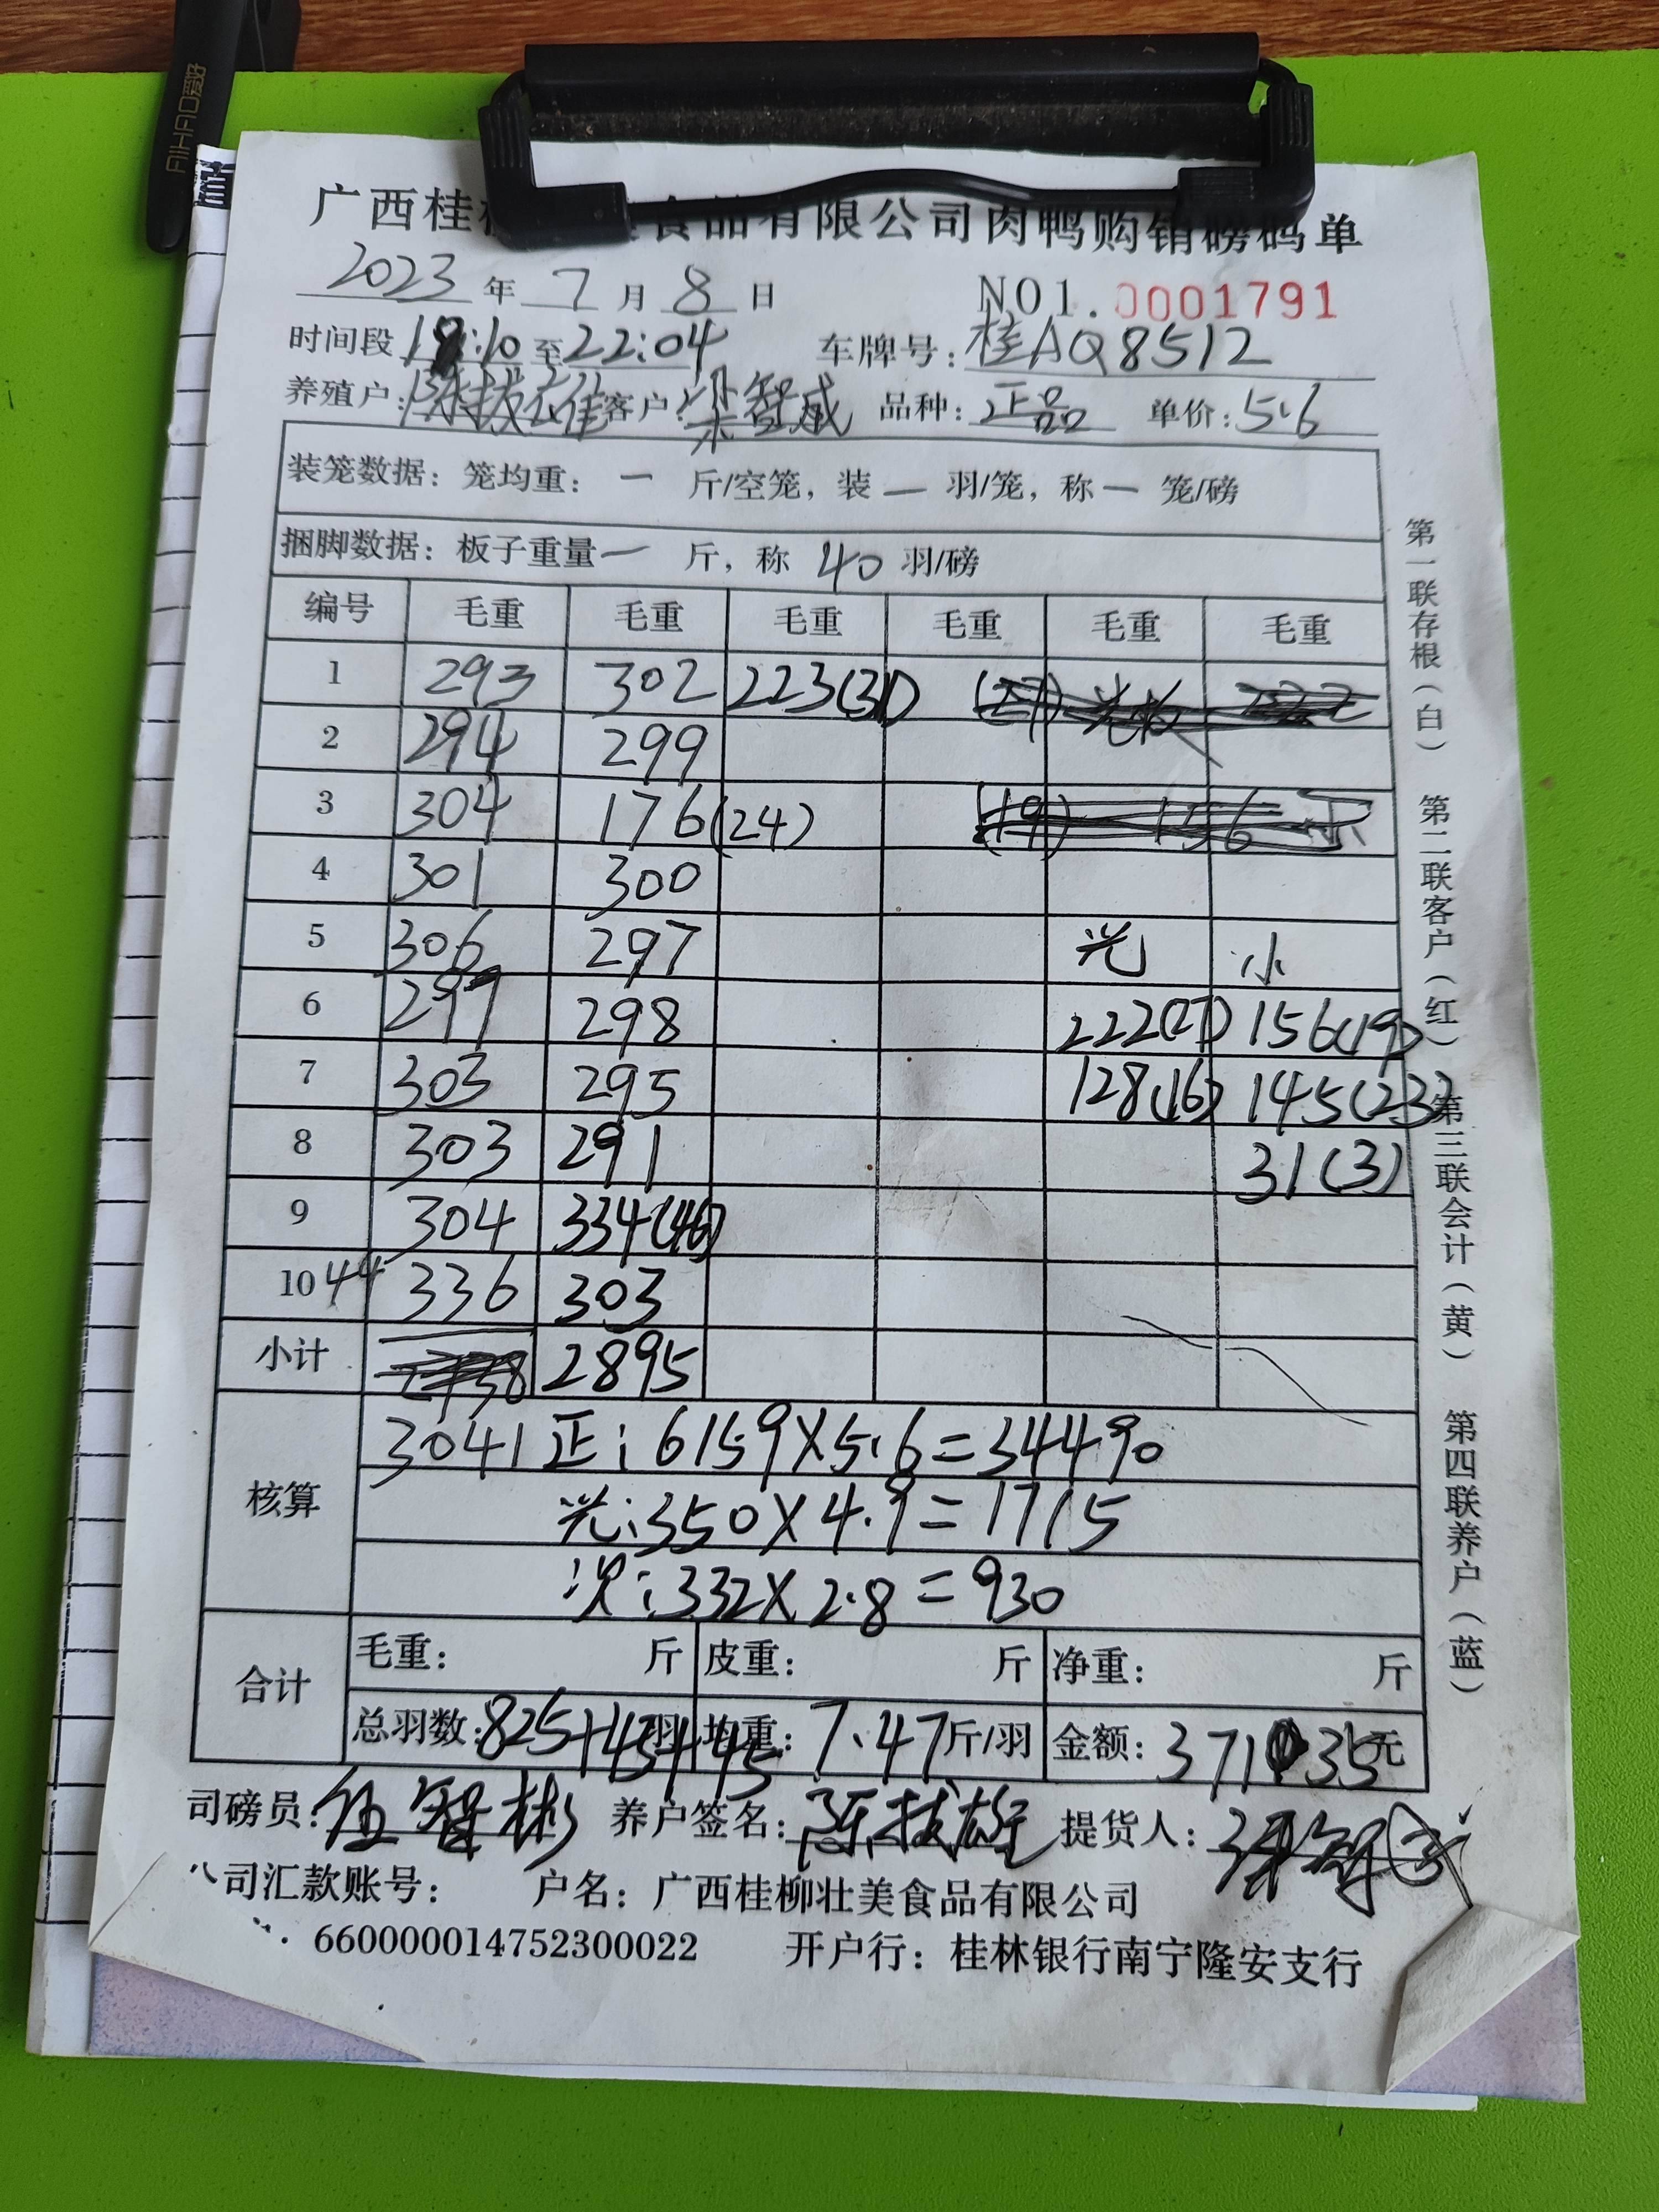 AIHAO爱好
广西桂 食品有限公司肉鸭购销磅码单
2023 年 7 月 8 日 NO1. 0001791
时间段 :10 至 22:04 车牌号: 桂AQ8512
养殖户: 陈拔雄 客户: 梁智威 品种: 正品 单价: 5.6
装笼数据: 笼均重: — 斤/空笼, 装 — 羽/笼, 称 — 笼/磅
捆脚数据: 板子重量 — 斤, 称 40 羽/磅
编号 毛重 毛重 毛重 毛重 毛重 毛重
1 293 302 223(31)
2 294 299
3 304 176(24) (19) 156 小
4 301 300
5 306 297 光 小
6 297 298 222(27) 156(19)
7 303 295 128(16) 145(23)
8 303 291 31(3)
9 304 334(46)
10 44 336 303
小计 2895
核算 3041 正: 6159X5.6=34490
光: 350X4.9=1715
次: 332X2.8=930
合计 毛重: 斤 皮重: 斤 净重: 斤
总羽数: 825+43+45 羽 均重: 7.47 斤/羽 金额: 37135 元
司磅员: 伍智彬 养户签名: 陈拔雄 提货人:
司汇款账号: 户名: 广西桂柳壮美食品有限公司
660000014752300022 开户行: 桂林银行南宁隆安支行
第一联存根(白) 第二联客户(红) 第三联会计(黄) 第四联养户(蓝)